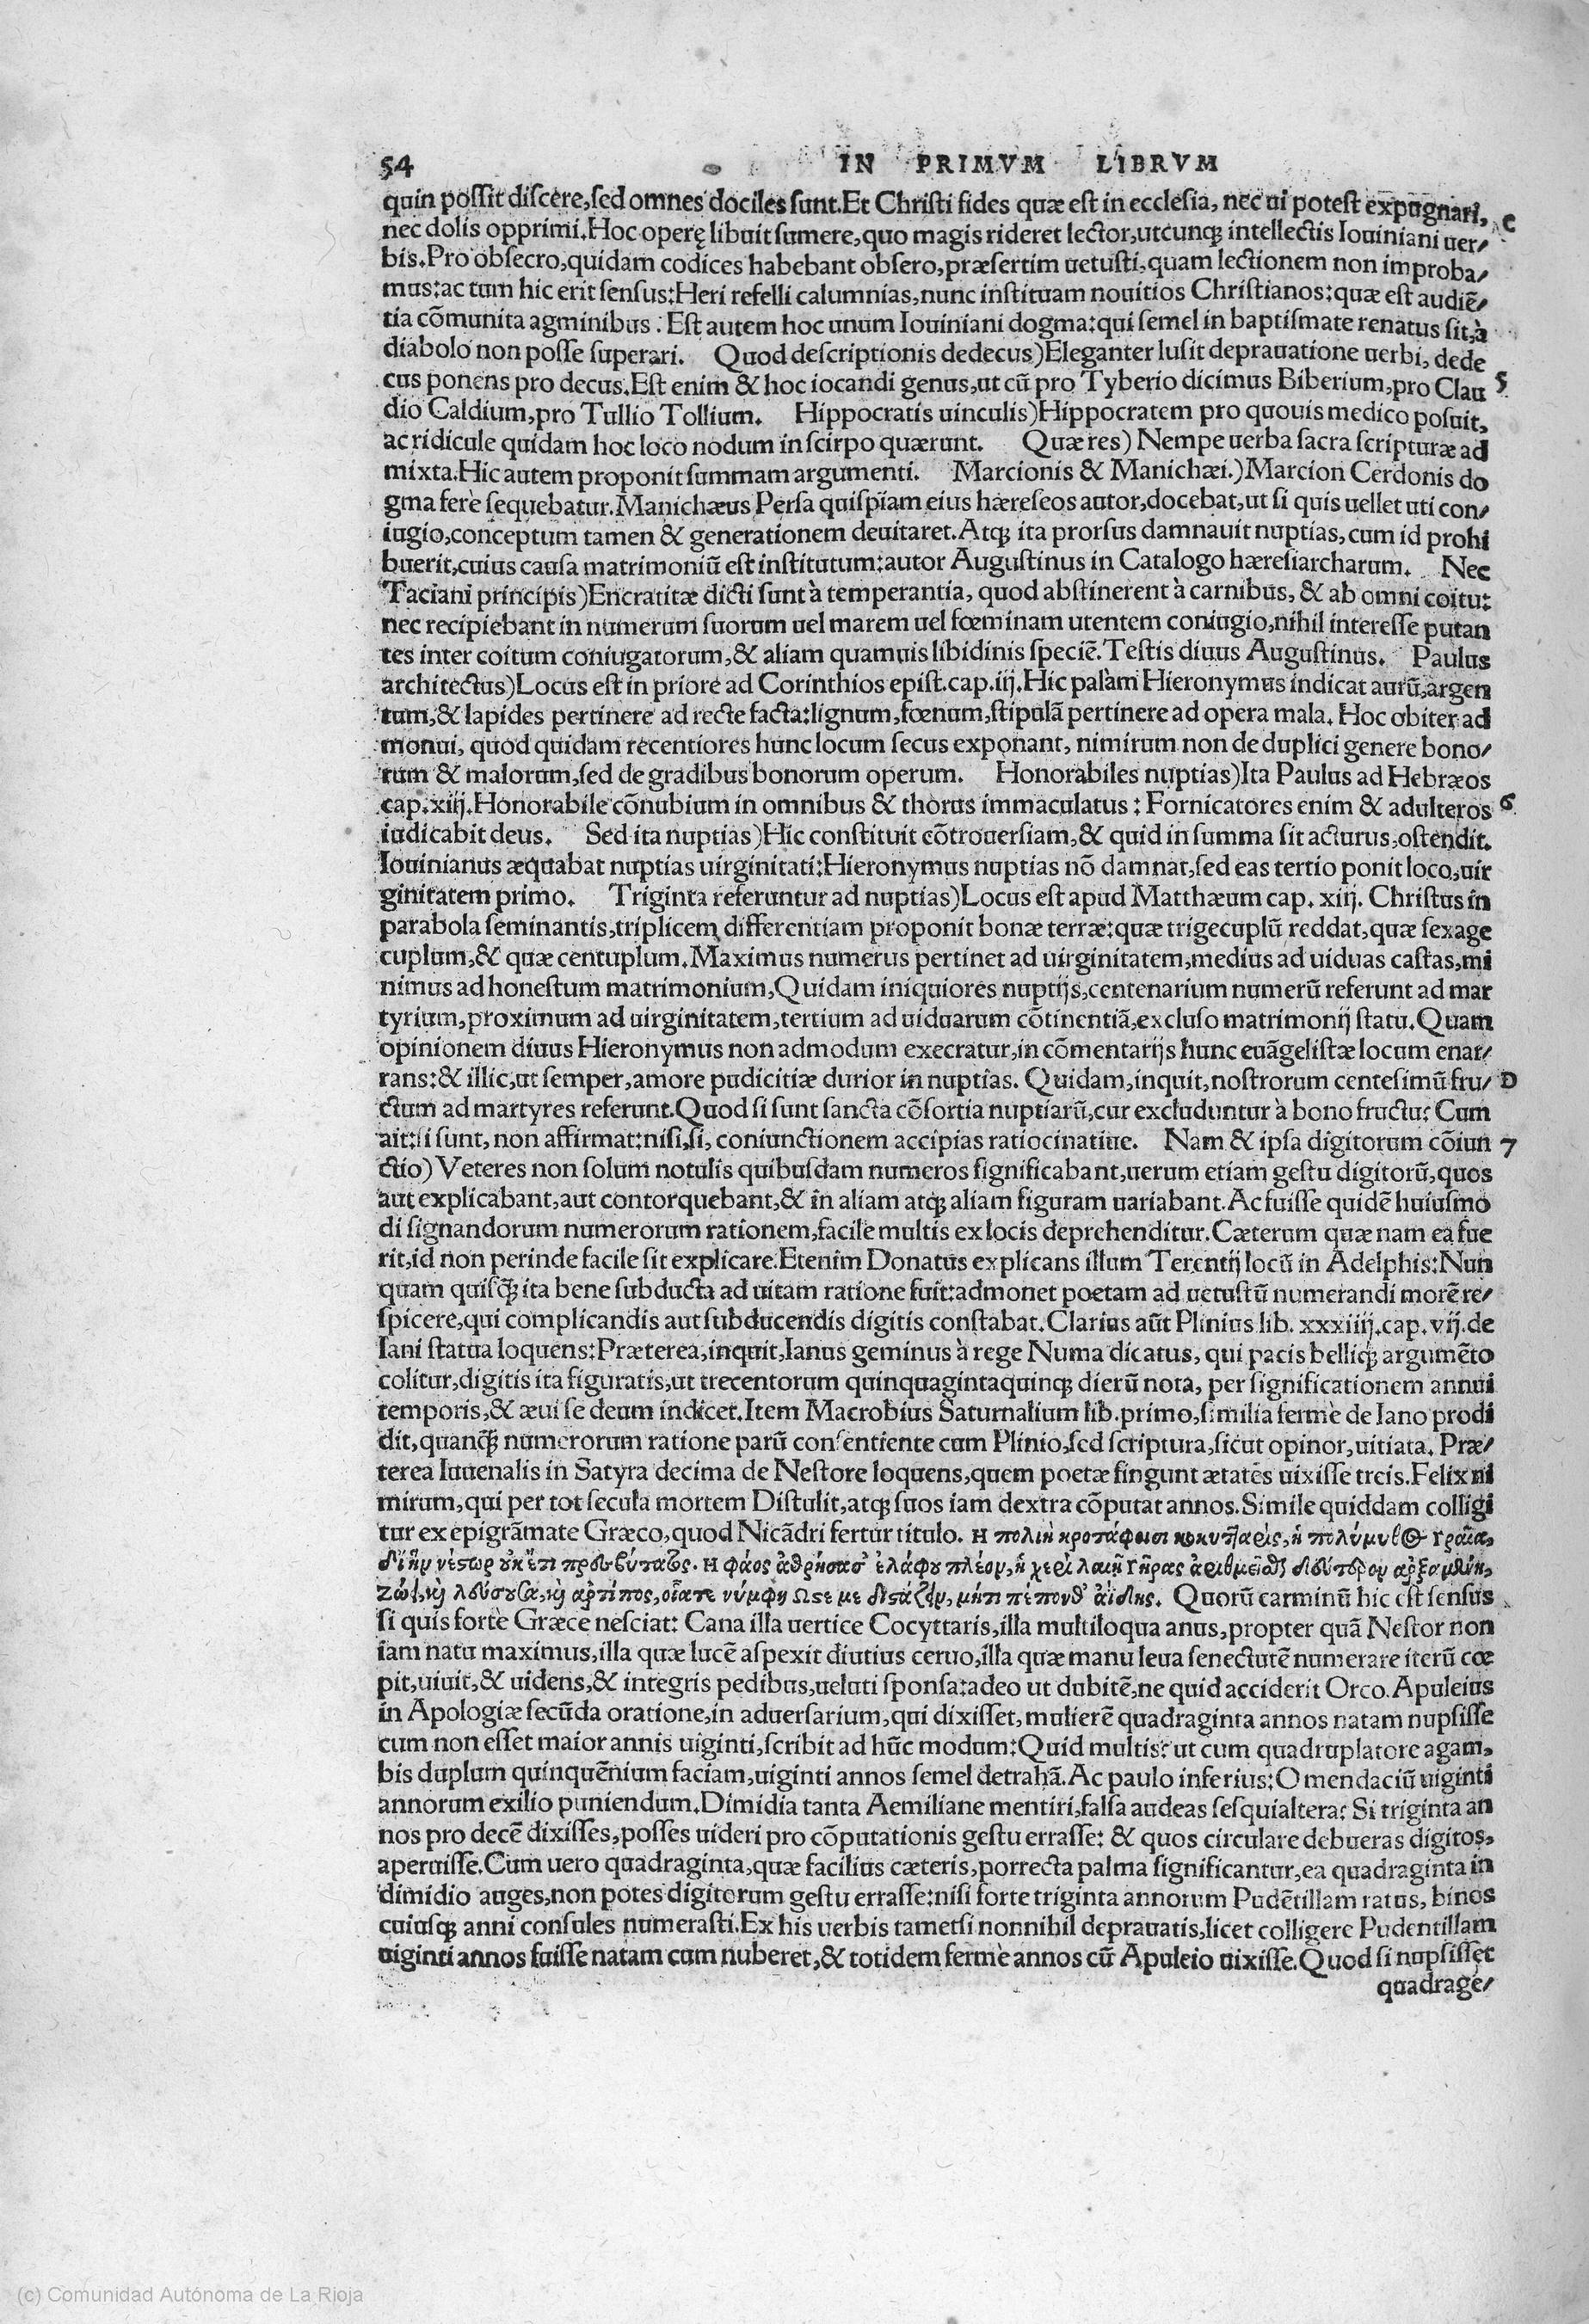 54 IN PRIMVM LIBRVM
quin possit discere,sed omnes dociles sunt.Et Christi fides quæ est in ecclesia, nec ui potest expūgnari, C
nec dolis opprimi.Hoc operę libuit sumere,quo magis rideret lector,utcunqʒ intellectis Iouiniani uer/
bis.Pro obsecro,quidam codices habebant obsero,præsertim uetusti,quam lectionem non improba/
mus:ac tum hic erit sensus:Heri refelli calumnias,nunc instituam nouitios Christianos:quæ est audiē/
tia cōmunita agminibus : Est autem hoc unum Iouiniani dogma:qui semel in baptismate renatus sit,à
diabolo non posse superari. Quod descriptionis dedecus)Eleganter lusit deprauatione uerbi, dede
cus ponens pro decus.Est enim & hoc iocandi genus,ut cū pro Tyberio dicimus Biberium,pro Clau 5
dio Caldium,pro Tullio Tollium. Hippocratis uinculis)Hippocratem pro quouis medico posuit,
ac ridicule quidam hoc loco nodum in scirpo quærunt. Quæ res) Nempe uerba sacra scripturæ ad
mixta.Hic autem proponit summam argumenti. Marcionis & Manichæi.)Marcion Cerdonis do
gma ferè sequebatur.Manichæus Persa quispiam eius hæreseos autor,docebat,ut si quis uellet uti con/
iugio,conceptum tamen & generationem deuitaret.Atqʒ ita prorsus damnauit nuptias,cum id prohi
buerit,cuius causa matrimoniū est institutum:autor Augustinus in Catalogo hæresiarcharum. Nec
Taciani principis)Encratitæ dicti sunt à temperantia, quod abstinerent à carnibus, & ab omni coitu:
nec recipiebant in numerum suorum uel marem uel fœminam utentem coniugio,nihil interesse putan
tes inter coitum coniugatorum,& aliam quamuis libidinis speciē.Testis diuus Augustinus. Paulus
architectus)Locus est in priore ad Corinthios epist.cap.iij.Hic palàm Hieronymus indicat aurū,argen
tum,& lapides pertinere ad recte facta:lignum,fœnum,stipulā pertinere ad opera mala. Hoc obiter ad
monui, quod quidam recentiores hunc locum secus exponant, nimirum non de duplici genere bono/
rum & malorum,sed de gradibus bonorum operum. Honorabiles nuptias)Ita Paulus ad Hebræos
cap.xiij.Honorabile cōnubium in omnibus & thorus immaculatus : Fornicatores enim & adulteros 6
iudicabit deus. Sed ita nuptias)Hic constituit cōtrouersiam,& quid in summa sit acturus,ostendit.
Iouinianus æquabat nuptias uirginitati:Hieronymus nuptias nō damnat,sed eas tertio ponit loco,uir
ginitatem primo. Triginta referuntur ad nuptias)Locus est apud Matthæum cap. xiij. Christus in
parabola seminantis,triplicem differentiam proponit bonæ terræ:quæ trigecuplū reddat,quæ sexage
cuplum,& quæ centuplum.Maximus numerus pertinet ad uirginitatem,medius ad uiduas castas,mi
nimus ad honestum matrimonium,Quidam iniquiores nuptijs,centenarium numerū referunt ad mar
tyrium,proximum ad uirginitatem,tertium ad uiduarum cōtinentiā,excluso matrimonij statu.Quam
opinionem diuus Hieronymus non admodum execratur,in cōmentarijs hunc euāgelistæ locum enar/
rans:& illic,ut semper,amore pudicitiæ durior in nuptias. Quidam,inquit,nostrorum centesimū fru/ D
ctum ad martyres referunt.Quod si sunt sancta cōsortia nuptiarū,cur excluduntur à bono fructu? Cum
ait:si sunt, non affirmat:nisi,si, coniunctionem accipias ratiocinatiue. Nam & ipsa digitorum cōiun 7
ctio) Veteres non solum notulis quibusdam numeros significabant,uerum etiam gestu digitorū,quos
aut explicabant,aut contorquebant,& in aliam atqʒ aliam figuram uariabant.Ac fuisse quidē huiusmo
di signandorum numerorum rationem,facile multis ex locis deprehenditur.Cæterum quæ nam ea fue
rit,id non perinde facile sit explicare.Etenim Donatus explicans illum Terentij locū in Adelphis:Nun
quam quisqʒ̄ ita bene subducta ad uitam ratione fuit:admonet poetam ad uetustū numerandi morē re/
spicere,qui complicandis aut subducendis digitis constabat.Clarius aūt Plinius lib. xxxiiij.cap.vij.de
Iani statua loquens:Præterea,inquit,Ianus geminus à rege Numa dicatus, qui pacis belliqʒ argumēto
colitur,digitis ita figuratis,ut trecentorum quinquagintaquinqʒ dierū nota, per significationem annui
temporis,& æui se deum indicet.Item Macrobius Saturnalium lib.primo,similia fermè de Iano prodi
dit,quanqʒ̄ numerorum ratione parū consentiente cum Plinio,sed scriptura,sicut opinor,uitiata. Præ/
terea Iuuenalis in Satyra decima de Nestore loquens,quem poetæ fingunt ætates uixisse treis.Felix ni
mirum,qui per tot secula mortem Distulit,atqʒ suos iam dextra cōputat annos.Simile quiddam colligi
tur ex epigrāmate Græco,quod Nicādri fertur titulo. Η πολιὴ κροτάφοισι κοκυτταρὶς,ἡ πολύμυθος γραῖα,
δι' ἣν νέστωρ οὐκ ἔτι πρεσβύτατος. Η φάος ἀθρήσασ' ἐλάφου πλέον,ἡ χερὶ λαιῇ γῆρας ἀριθμεῖσθαι δεύτερον ἀρξαμένη,
Ζώει,καὶ λεύσουσα,καὶ ἀρτίπος,οἷά τε νύμφη Ωστε με διστάζειν, μήτι πέπονθ' ἀΐδης. Quorū carminū hic est sensus
si quis fortè Græce nesciat: Cana illa uertice Cocyttaris,illa multiloqua anus,propter quā Nestor non
iam natu maximus,illa quæ lucē aspexit diutius ceruo,illa quæ manu leua senectutē numerare iterū cœ
pit,uiuit,& uidens,& integris pedibus,ueluti sponsa:adeo ut dubitē,ne quid acciderit Orco.Apuleius
in Apologiæ secūda oratione,in aduersarium,qui dixisset, mulierē quadraginta annos natam nupsisse
cum non esset maior annis uiginti,scribit ad hūc modum:Quid multis? ut cum quadruplatore agam,
bis duplum quinquēnium faciam,uiginti annos semel detrahā.Ac paulo inferius:O mendaciū uiginti
annorum exilio puniendum.Dimidia tanta Aemiliane mentiri,falsa audeas sesquialtera? Si triginta an
nos pro decē dixisses,posses uideri pro cōputationis gestu errasse: & quos circulare debueras digitos,
aperuisse.Cum uero quadraginta,quæ facilius cæteris,porrecta palma significantur,ea quadraginta in
dimidio auges,non potes digitorum gestu errasse:nisi forte triginta annorum Pudētillam ratus, binos
cuiusqʒ anni consules numerasti.Ex his uerbis tametsi nonnihil deprauatis,licet colligere Pudentillam
uiginti annos fuisse natam cum nuberet,& totidem fermè annos cū Apuleio uixisse.Quod si nupsisset
quadrage/
(c) Comunidad Autónoma de La Rioja